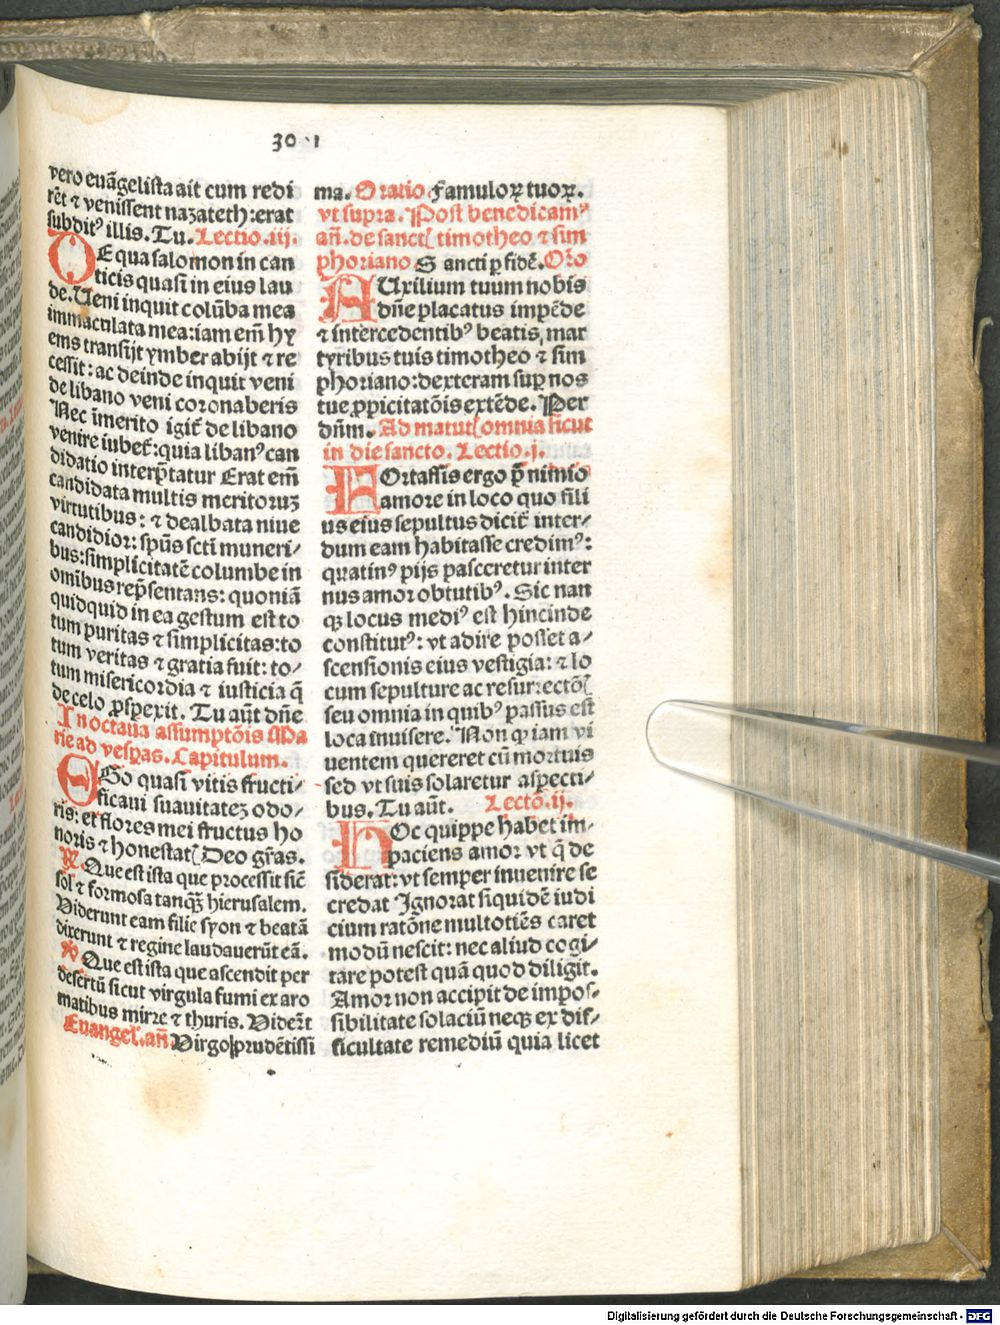 30 1
vero euãgelista ait cum redi
rẽt ⁊ venissent nazateth:erat
subditꝰ illis. Tu. Lectio .iij.
DE qua salomon in can
ticis quasi in eius lau
de. Ueni inquit colũba mea
immaculata mea:iam em̃ hy
ems transijt ymber abijt ⁊ re
cessit: ac deinde inquit veni
de libano veni coronaberis
Nec ĩmerito igit̃ de libano
venire iubet̃:quia libanꝰ can
didatio interp̃tatur Erat em̃
candidata multis meritoruꝫ
virtutibus: ⁊ dealbata niue
candidior: spũs scti muneri/
bus:simplicitatẽ columbe in
omĩbus rep̃sentans: quoniã
quidquid in ea gestum est to
tum puritas ⁊ simplicitas:to
tum veritas ⁊ gratia fuit: to/
tum misericordia ⁊ iusticia q̃
de celo ꝓspexit. Tu aũt dñe
In octaua assumptõis Ma
rie ad vesꝑas. Capitulum.
EGo quasi vitis fructi/
ficaui suauitateꝫ odo/
ris: et flores mei fructus ho
noris ⁊ honestat( Deo gr̃as.
℟ Que est ista que processit sic̃
sol ⁊ formosa tanqꝫ hierusalem.
Viderunt eam filie syon ⁊ beatã
dixerunt ⁊ regine laudauerũt eã.
℣ Que est ista que ascendit per
desertũ sicut virgula fumi ex aro
matibus mirre ⁊ thuris. Vider̃t
Euangel̃. añ Virgo prudẽtissi
ma. Oratio Famuloꝝ tuoꝝ.
vt supra. Post benedicamꝰ
añ. de sanct( timotheo ⁊ sim
phoriano Sancti ꝑ fidẽ. Oro
AUxilium tuum nobis
dñe placatus impẽde
⁊ intercedentibꝰ beatis, mar
tyribus tuis timotheo ⁊ sim
phoriano:dexteram suꝑ nos
tue ꝓpicitatõis extẽde. Per
dñm. Ad matut( omnia sicut
in die sancto. Lectio .j.
FOrtassis ergo p̃ nimio
amore in loco quo fili
us eius sepultus dicit̃ inter/
dum eam habitasse credimꝰ:
quatinꝰ pijs pasceretur inter
nus amor obtutibꝰ. Sic nan
qꝫ locus mediꝰ est hincinde
constitutꝰ: vt adire posset a/
scensionis eius vestigia: ⁊ lo
cum sepulture ac resurrectõ(
seu omnia in quibꝰ passus est
loca inuisere. Non ꝙ iam vi
uentem quereret cũ mortuis
sed vt suis solaretur aspecti/
bus. Tu aũt. Lectõ. ij.
HOc quippe habet im/
paciens amor vt q̃ de
siderat: vt semper inuenire se
credat Ignorat siquidẽ iudi
cium ratõne multotiẽs caret
modũ nescit: nec aliud cogi/
tare potest quã quod diligit.
Amor non accipit de impos/
sibilitate solaciũ neqꝫ ex dif/
ficultate remediũ quia licet
Digitalisierung gefördert durch die Deutsche Forschungsgemeinschaft - DFG